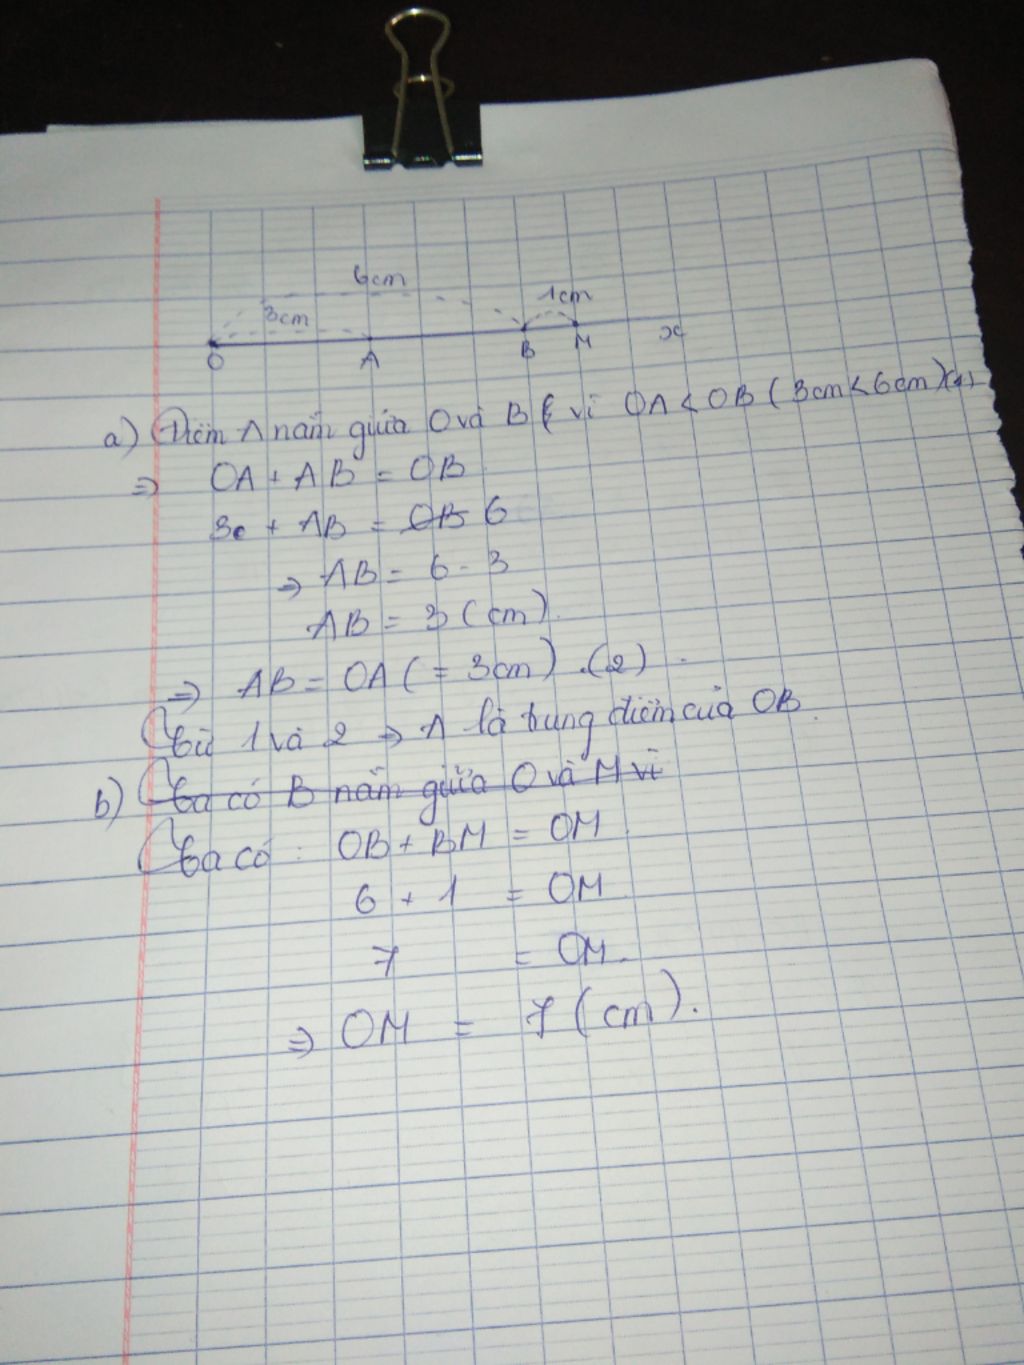 6cm
3cm
1cm
O A B M x
a) Điểm A nằm giữa O và B vì OA < OB (3cm < 6cm) (1)
=> OA + AB = OB
3 + AB = OB 6
=> AB = 6 - 3
AB = 3 (cm).
=> AB = OA (= 3cm). (2).
Từ 1 và 2 => A là trung điểm của OB.
b) Ta có B nằm giữa O và M vì
Ta có: OB + BM = OM
6 + 1 = OM
7 = OM.
=> OM = 7 (cm).